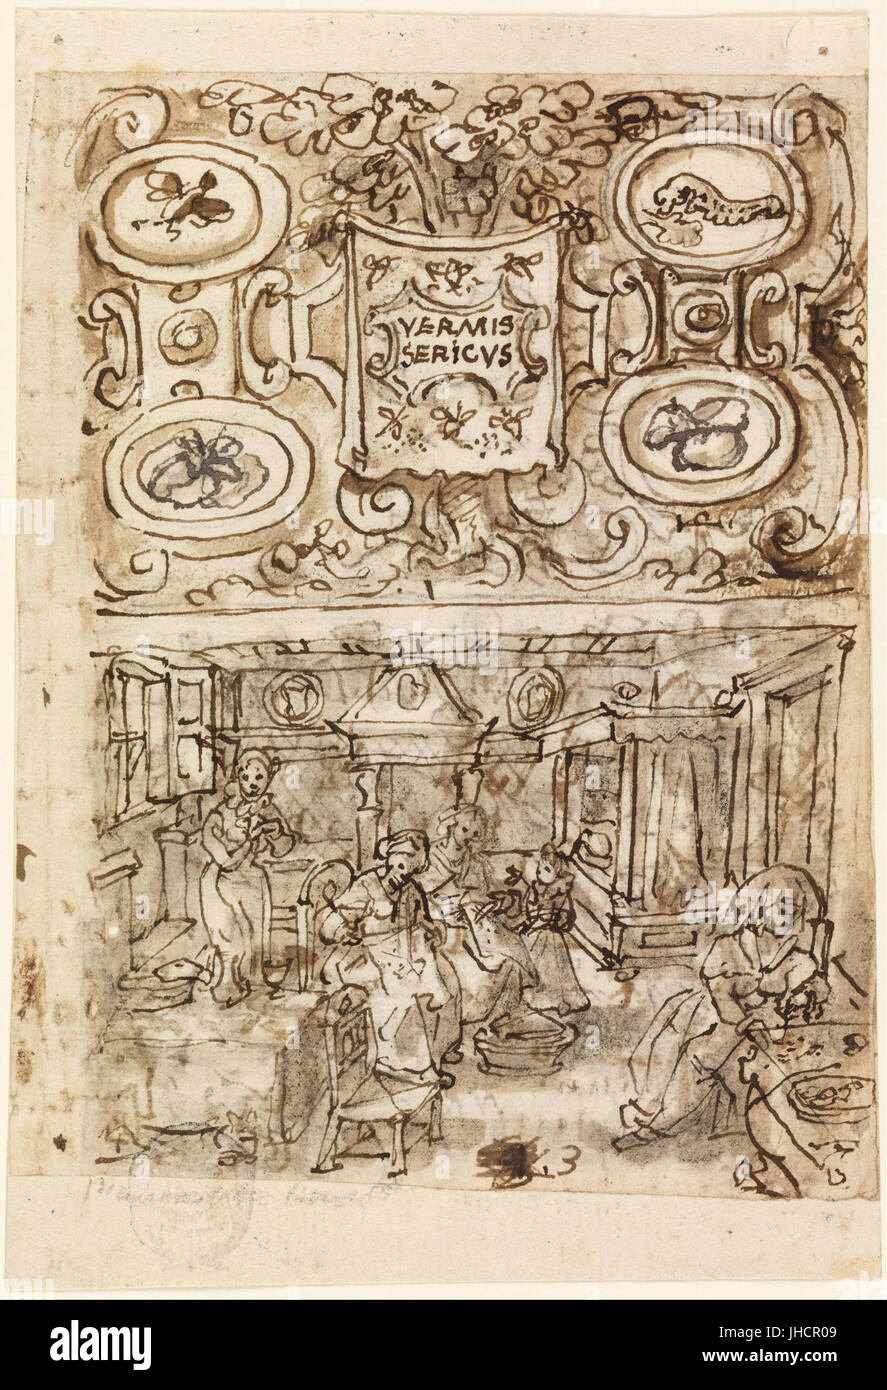 VERMIS
SERICVS
3
alamy
Image ID: JHCR09
www.alamy.com